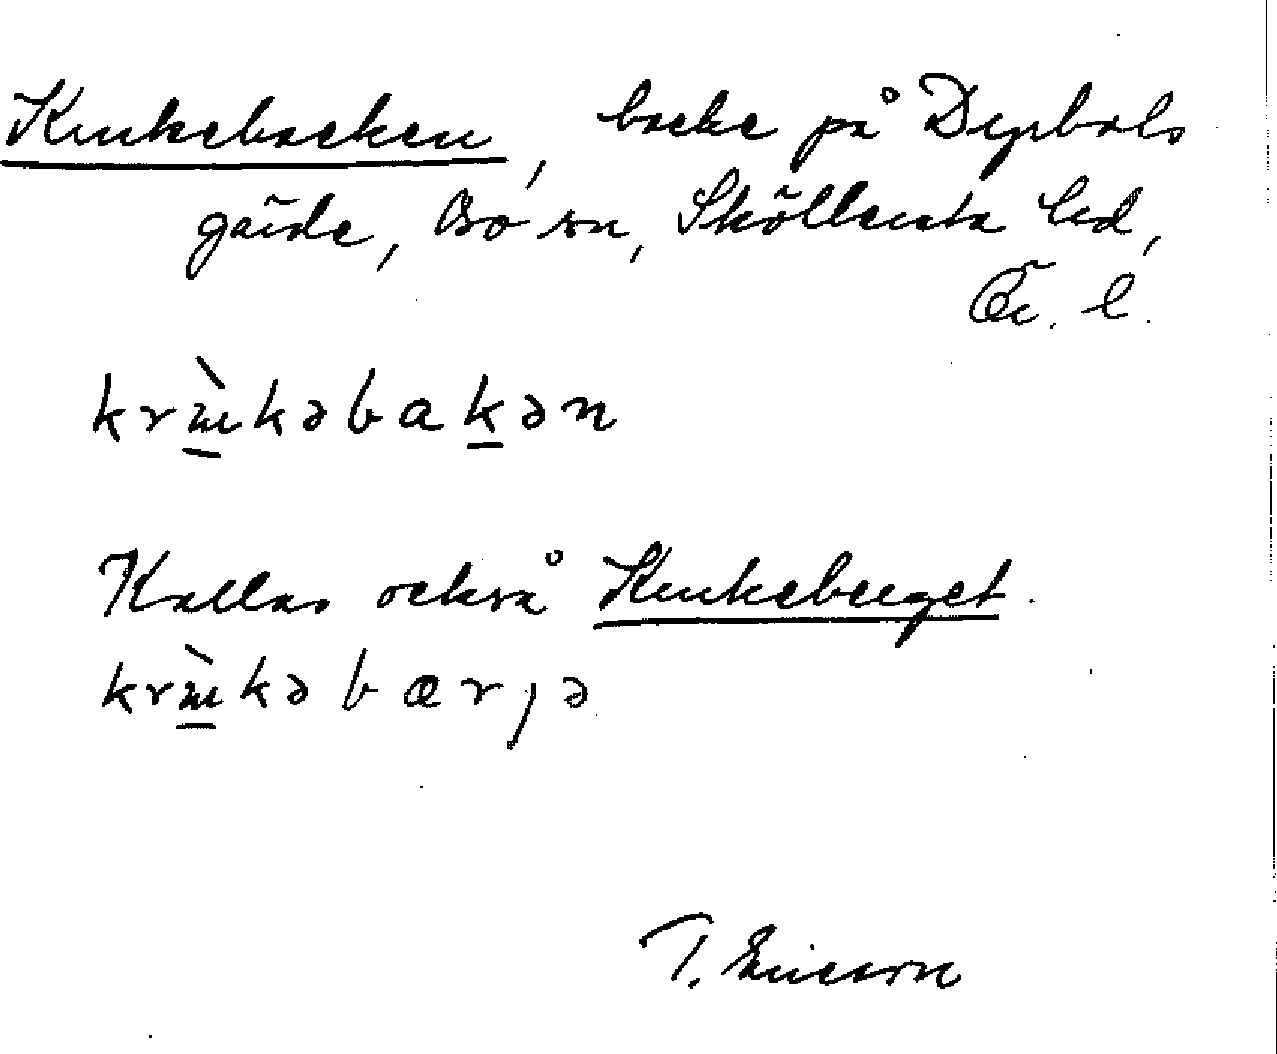 Krukebacken, backe på Dyrbals
gärde, Bo sn, Sköllersta hd,
Ör. l.
krʉ̀kəbaḵən
Kallas också Krukeberget.
krʉ̀kəbærjə
T. Ericson